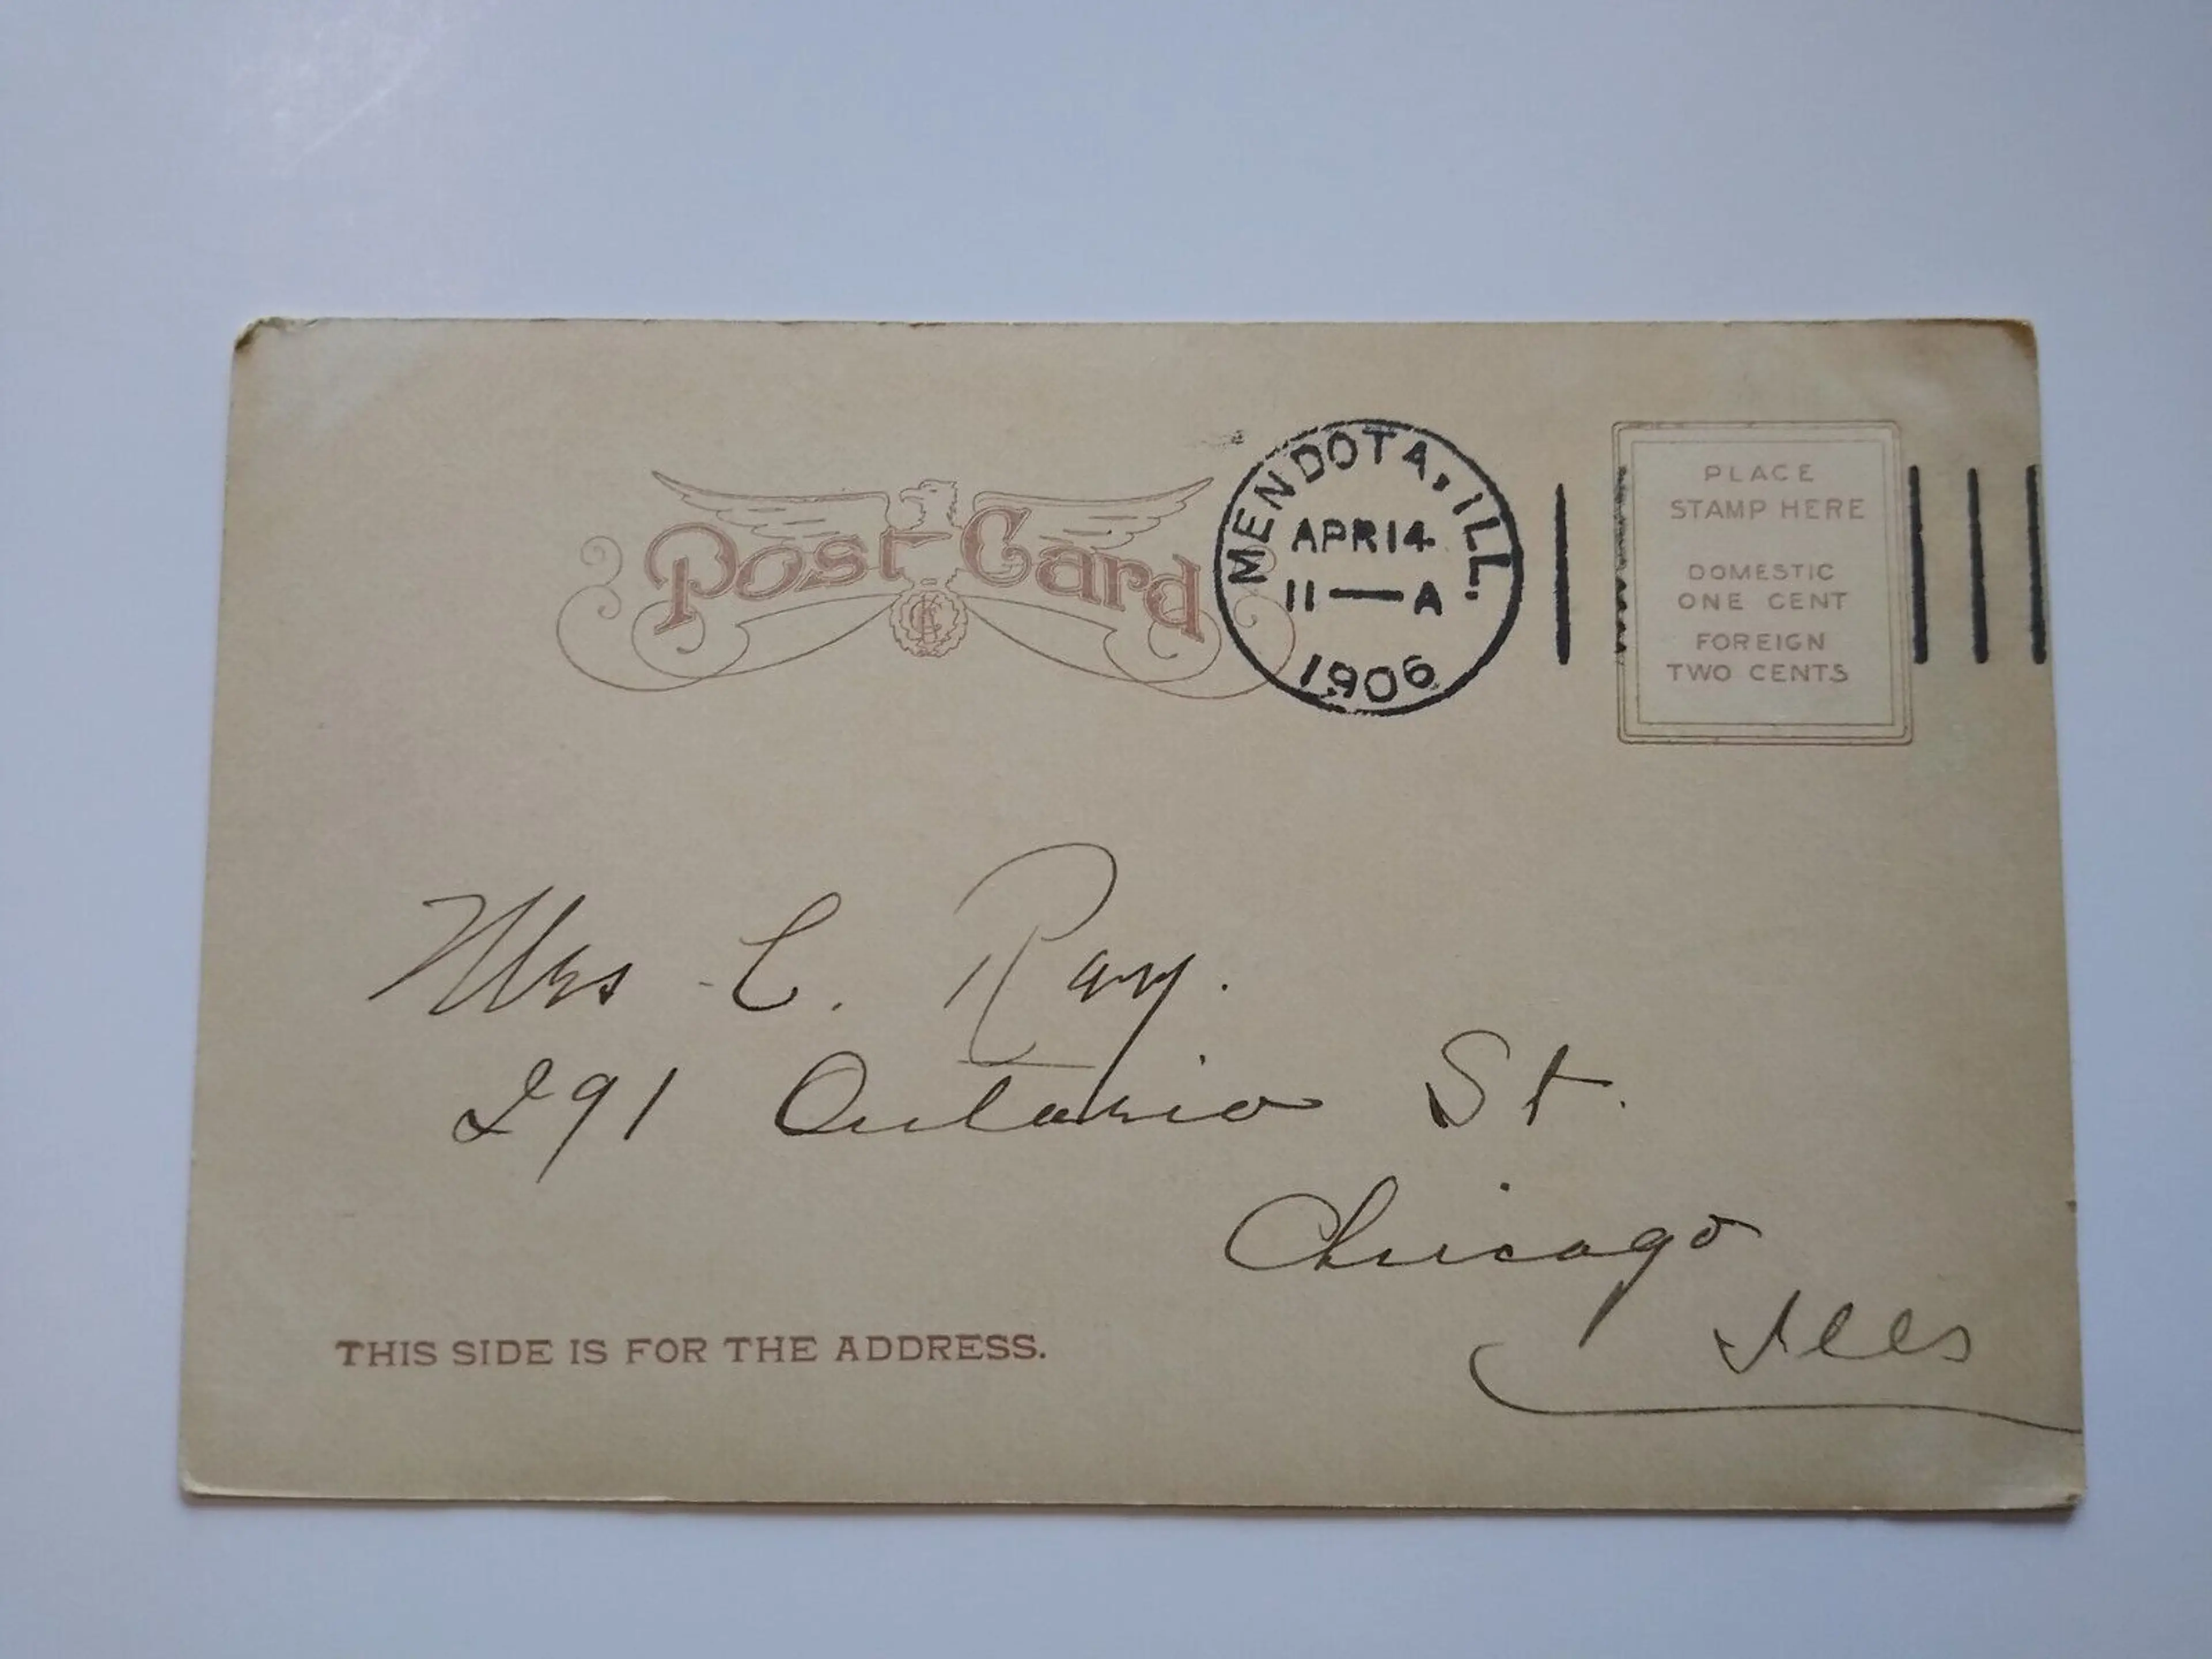 Post Card
MENDOTA, ILL.
APR 14
11—A
1906
PLACE
STAMP HERE
DOMESTIC
ONE CENT
FOREIGN
TWO CENTS
Mrs C. Ray.
291 Ontario St.
Chicago
Ills
THIS SIDE IS FOR THE ADDRESS.